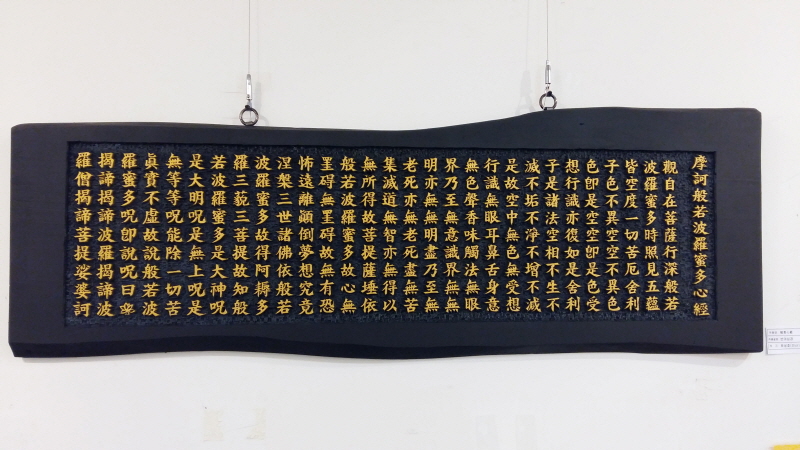 摩訶般若波羅蜜多心經
觀自在菩薩行深般若
波羅蜜多時照見五蘊
皆空度一切苦厄舍利
子色不異空空不異色
色卽是空空卽是色受
想行識亦復如是舍利
子是諸法空相不生不
滅不垢不淨不增不減
是故空中無色無受想
行識無眼耳鼻舌身意
無色聲香味觸法無眼
界乃至無意識界無無
明亦無無明盡乃至無
老死亦無老死盡無苦
集滅道無智亦無得以
無所得故菩提薩埵依
般若波羅蜜多故心無
罣碍無罣碍故無有恐
怖遠離顚倒夢想究竟
涅槃三世諸佛依般若
波羅蜜多故得阿耨多
羅三藐三菩提故知般
若波羅蜜多是大神呪
是大明呪是無上呪是
無等等呪能除一切苦
眞實不虛故說般若波
羅蜜多呪卽說呪曰
揭諦揭諦波羅揭諦波
羅僧揭諦菩提娑婆訶